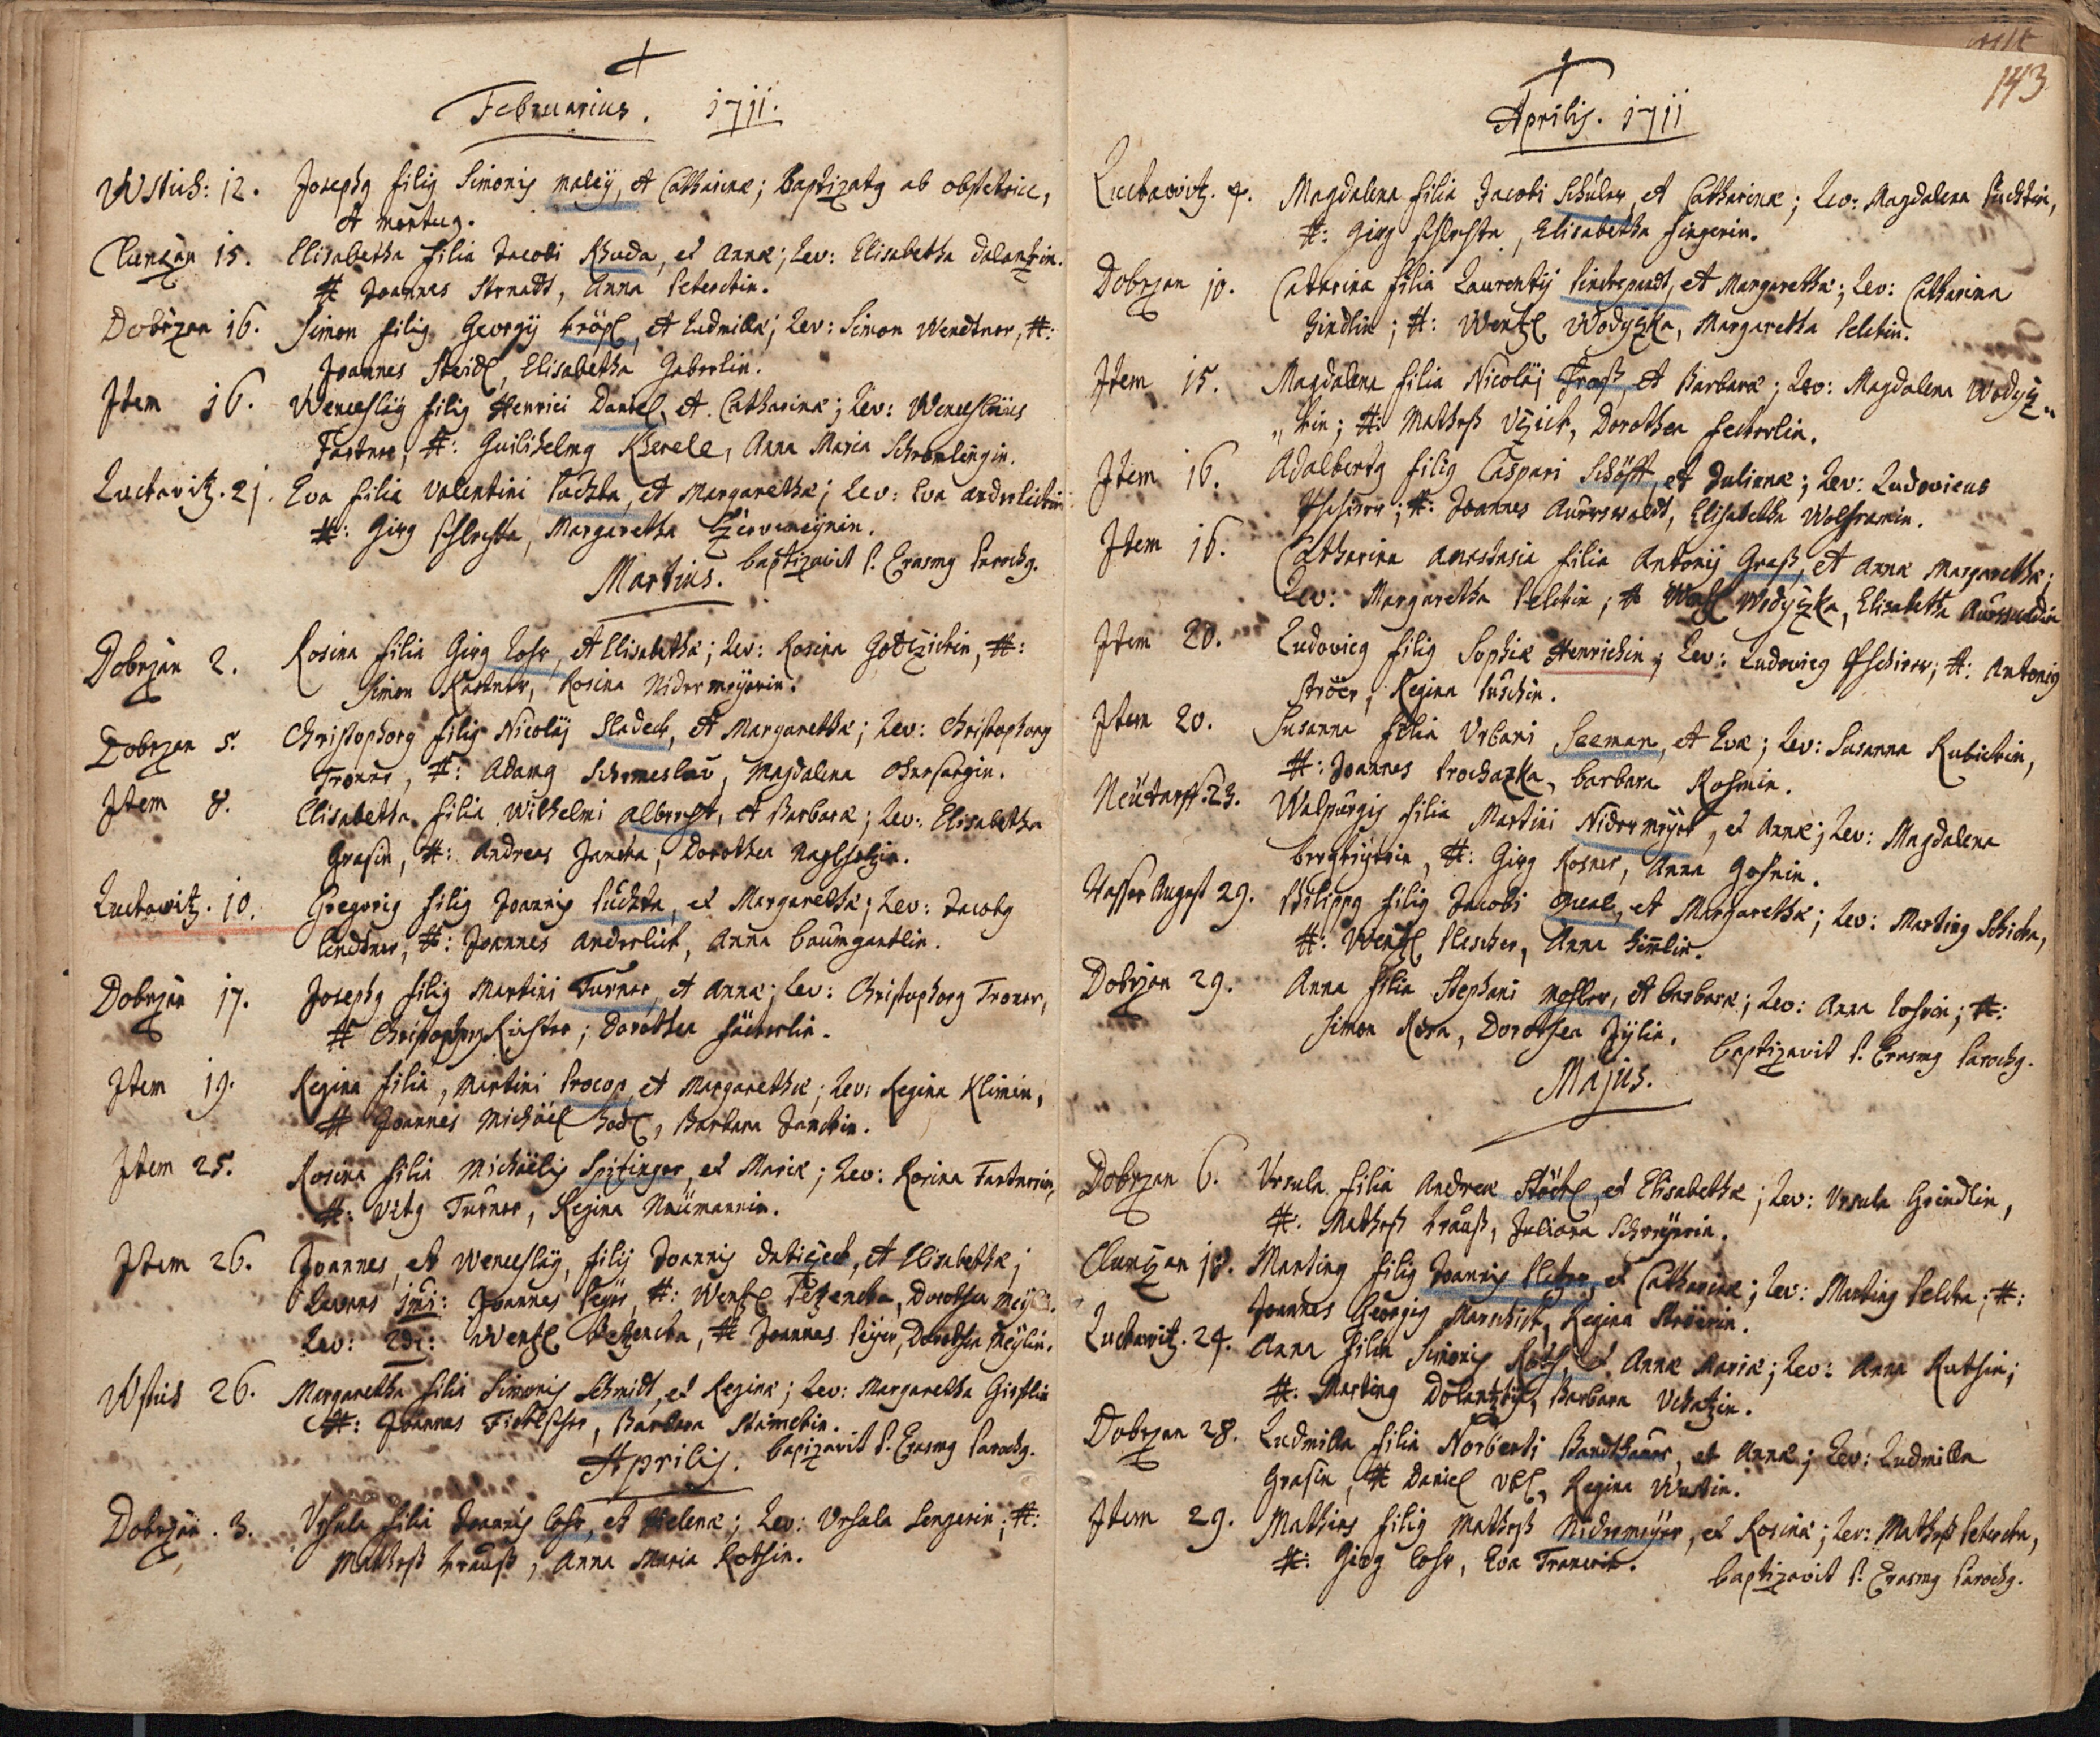 Februarius. 1711.
Wstish: 12. Josephg filig Simonis maley, et Catharinæ; Baptizatg ab obstetrice,
et mortug.
Clunzan 15. Elisabetha filia Jacobi Khuda, et Annæ; Lev: Elisabetha
#: Joannes Strnadt, Anna Peterckin.
Dobrzan 16. Simon filig Georgÿ Kröpl, et Ludmillæ; Lev: Simon Wendtner, #:
Joannes Steidl, Elisabetha Gaberlin.
Item 16. Wenceslÿ filig Henrici Daniel, et Catharinæ; Lev: Wenceslaus
Fartner, #: Guilihelmg Kherele, Anna Maria
Luctawitz. 21. Eva filia Valentini Puchta, et Margarethæ; Lev: Eva Anderlickin
#: Girg, Margaretha
baptizavit P. Erasmg Parochg.
Martius.
Dobrzan 2. Rosina filia Girg Lohr, et Elisabethæ; Lev: Rosina, #:
Simon Kastner, Rosina Nidermeÿerin.
Dobrzan 5. Christophorg filig Nicolaj Sladeck, et Margarethæ; Lev: Christophorg
Troner, #: Adamg, Magdalena
Item 8. Elisabetha filia Wilhelmi Albrecht, et Barbaræ; Lev: Elisabetha
Grasin, #: Andreas Jancka, Dorothea
Luctawitz. 10. Gregorig filig Joannis Puchta, et Margarethæ; Lev: Jacobg
Lendtner, #: Joannes Anderlick, Anna Baumgartlin.
Dobrzan 17. Josephg filig Martini Turner, et Annæ; Lev: Christophorg Troner,
#: Christophorg Richter; Dorothea
Item 19. Regina filia, Martini Procop, et Margarethæ; Lev: Regina Klimin,
#: Joannes Michäel Hodl, Barbara Janckin.
Item 25. Rosina filia Michaëlis Spitzinger, et Mariæ; Lev: Rosina Fartnerin,
#: Vitg Turner, Regina Neümannin.
Item 26. Joannes, et Wenceslÿ, filij Joannis, et Elisabethæ;
Levans 1mi: Joannes Peÿer, #: Wentzl Petzencka, Dorothea Meÿlin.
Lev: 2di: Wentzl Petzencka, #: Joannes Peÿer, Dorothea Meÿlin.
Wstis 26. Margaretha filia Simonis Schmidt, et Reginæ; Lev: Margaretha
#: Joannes, Barbara
baptizavit P. Erasmg Parochg.
Aprilis.
Dobrzan. 3. Vrsula filia Joannis Lohr, et Helenæ; Lev: Vrsula Sengerin; #:
Matheß Krauß, Anna Maria Rothin.
143
Aprilis. 1711
Luctawitz. 4. Magdalena filia Jacobi Schuler, et Catharinæ; Lev: Magdalena Puchtin,
#: Girg, Elisabetha Singerin.
Dobrzan 10. Catarina filia Laurentij, et Margarethæ; Lev: Catharina
Hindlin; #: Wentzl Wodyzka, Margaretha Pelckin.
Item 15. Magdalena filia Nicolaj Graß, et Barbaræ; Lev: Magdalena Wodyz„
„kin; #: Matheß, Dorothea
Item 16. Adalbertg filig Caspari Schöfft, et Julianæ; Lev: Ludovicus
Pschirer; #: Joannes Auerswaldt, Elisabetha Wolframin.
Item 16. Catharina Anastasia filia Antonij Graß, et Annæ Margarethæ;
Lev: Margaretha Pelckin; #: Wentzl Wodyzka, Elisabetha
Item 20. Ludovicg filig Sophiæ Henrichin; Lev: Ludovicg Pschirer; #: Antonig
Ströer, Regina
Item 20. Susanna filia Vrbani Seeman, et Evæ; Lev: Susanna Kubickin,
#: Joannes Prochazka, barbara
Neüdorff. 23. Walpurgis filia Martini Nidermeÿer, et Annæ; Lev: Magdalena
#: Girg Rosner, Anna
Wasser August 29. Philippg filig Jacobi, et Margarethæ; Lev: Marting Schicka,
#: Wentzl Plescher, Anna Himlin.
Dobrzan 29. Anna filia Stephani Mosler, et barbaræ; Lev: Anna Lohrin; #:
Simon, Dorothea
baptizavit P. Erasmg Parochg.
Majus.
Dobrzan 6. Vrsula filia Andreæ Stöckl, et Elisabethæ; Lev: Vrsula Grindlin,
#: Matheß Krauß, Juliana Schreÿerin.
Clunzan 18. Marting filig Joannis, et Catharinæ; Lev: Marting Pelcka; #:
Joannes Georgig, Regina Ströerin.
Luctawitz. 24. Anna filia Simonis Roth, et Annæ Mariæ; Lev: Anna
#: Marting, Barbara
Dobrzan 28. Ludmilla filia Norberti, et Annæ; Lev: Ludmilla
Grasin, #: Daniel Vbl, Regina
Item 29. Mathias filig Matheß Nidermeÿer, et Rosinæ; Lev: Matheß Petercka,
#: Girg Lohr, Eva Tronerin.
baptizavit P. Erasmg Parochg.